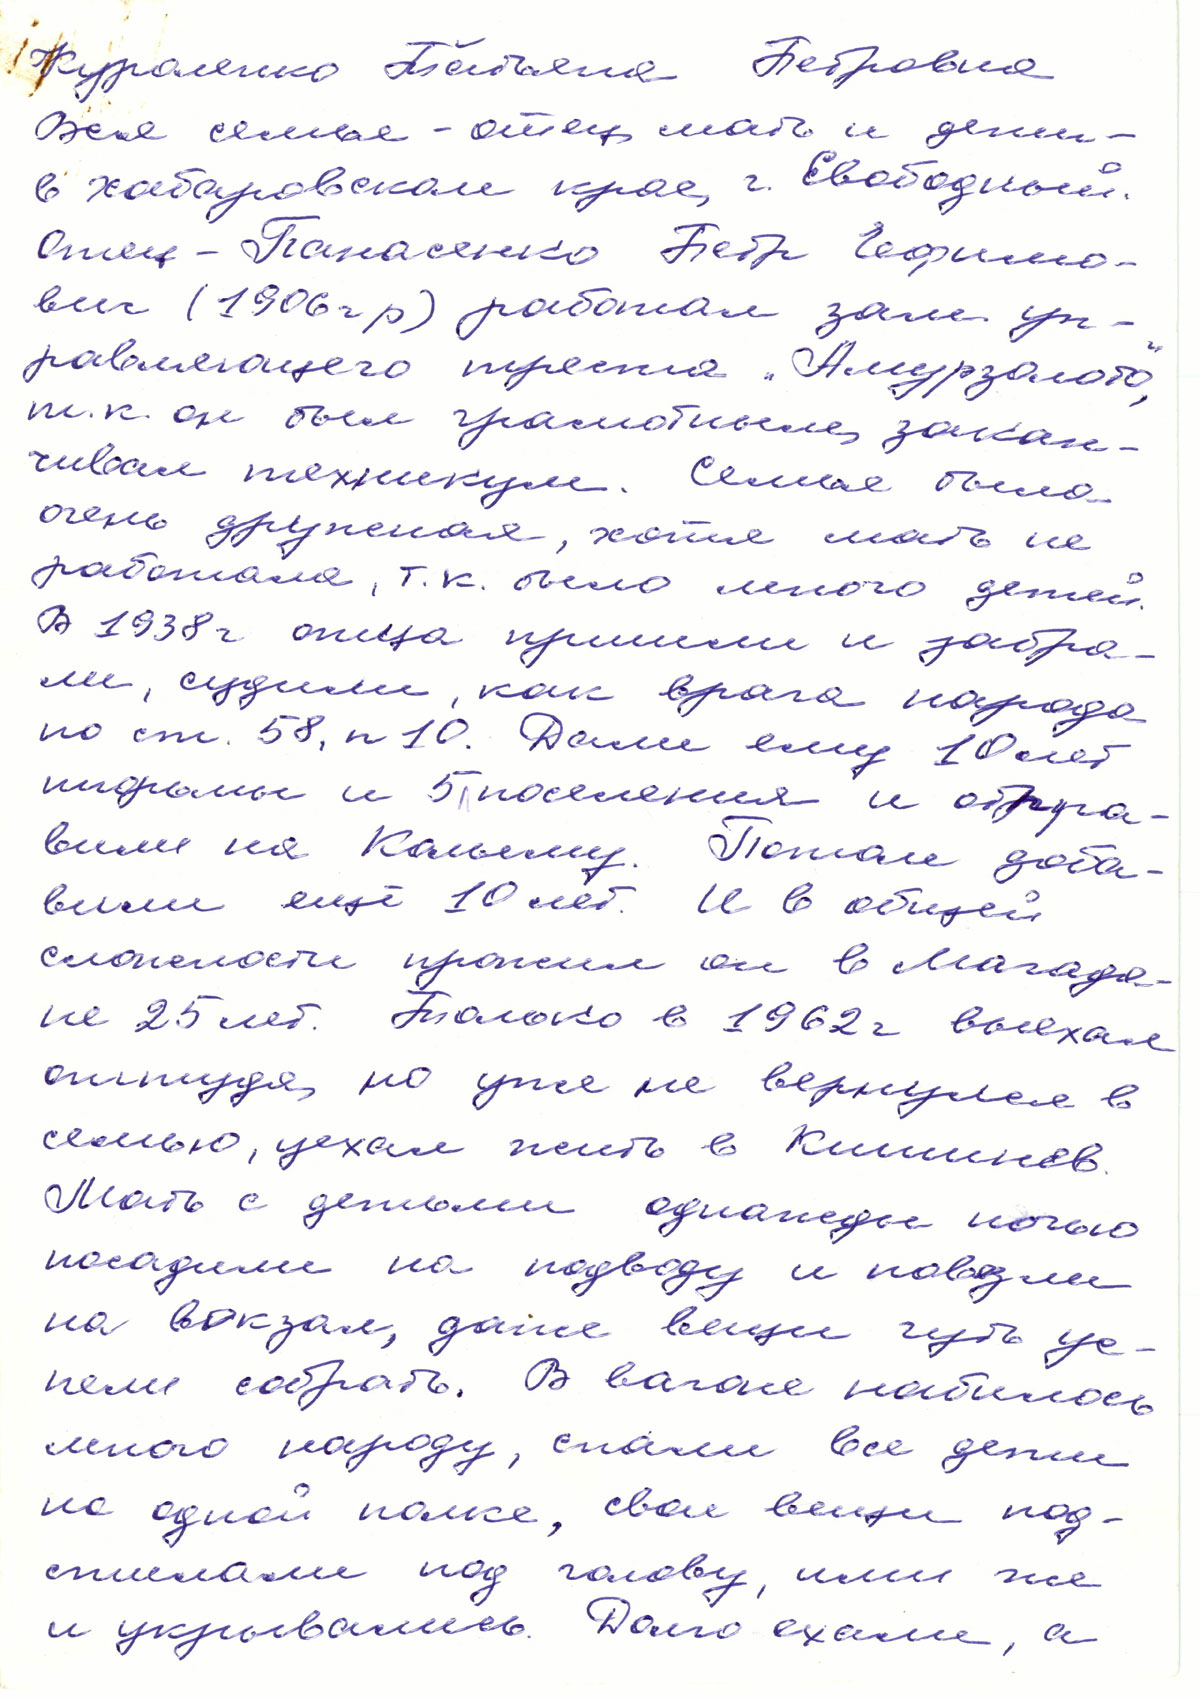 Жураленко Татьяна Петровна
Вся семья - отец, мать и дети -
в хабаровском крае, г. Свободный.
Отец - Панасенко Петр Ефимо-
вич (1906 г р) работал зам. уп-
равляющего треста „Амурзолото",
т.к. он был грамотным, закан-
чивал техникум. Семья была
очень дружная, хотя мать не
работала, т.к. было много детей.
В 1938 г отца пришли и забра-
ли, судили, как врага народа
по ст. 58, п 10. Дали ему 10 лет
тюрьмы и 5 поселения и отпра-
вили на Колыму. Потом доба-
вили ещё 10 лет. И в общей
сложности прожил он в Магада-
не 25 лет. Только в 1962 г выехал
оттуда, но уже не вернулся в
семью, уехал жить в Кишинёв.
Мать с детьми однажды ночью
посадили на подводу и повезли
на вокзал, даже вещи чуть ус-
пели собрать. В вагоне набилось
много народу, спали все дети
на одной полке, свои вещи под-
стилали под голову, ими же
и укрывались. Долго ехали, а